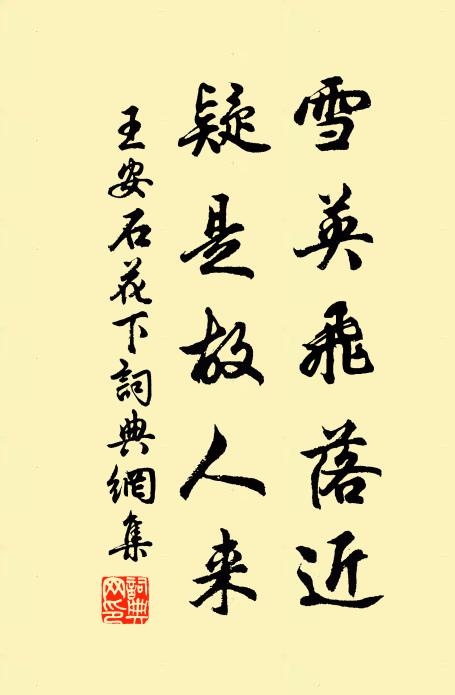 雪英飛落近
疑是故人来
王安石花下詞典網集
詞典网印